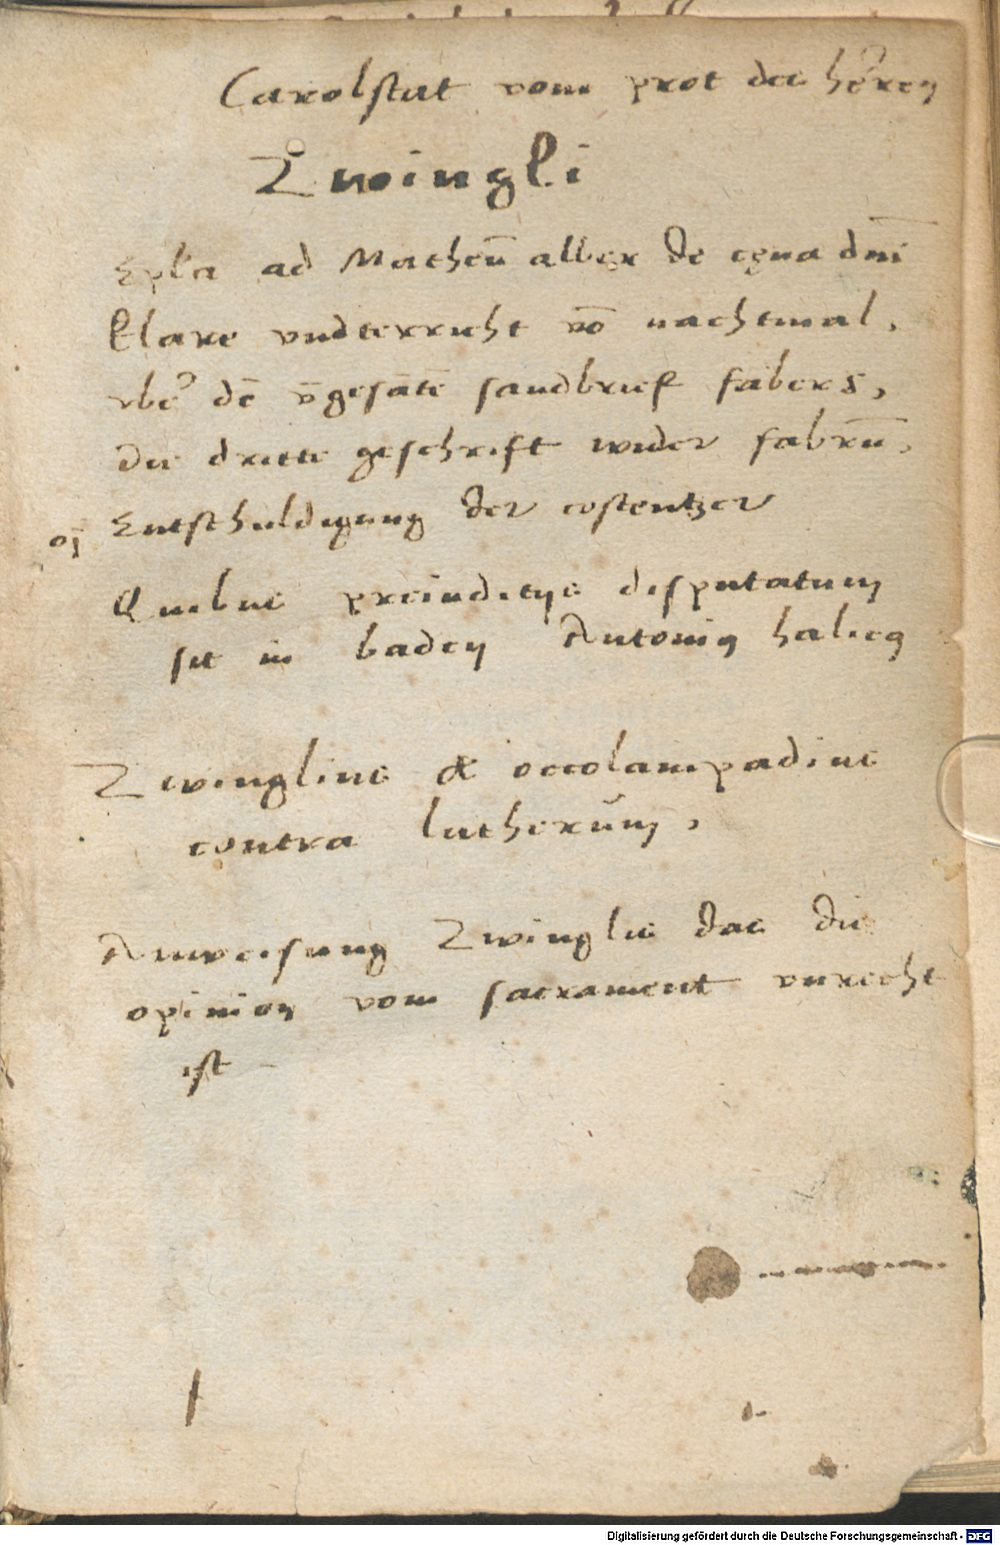 Carolstat vom prot des heren
Zwingli
Epla ad Matheū alber de cęna dn̄i
klare vndterricht vō nachtmal,
vbe' dē v̄gesātē sandbrief fabers,
die dritte geschrift wider fabrū,
Entschuldigung der costentzer
Quibus preiudicijs disputatum
sit in baden Antonij
Zwinglius & oecolampadius
contra lutherum,
Anweisung Zwinglis das die
opinion vom sacrament vnrecht
ist
Digitalisierung gefördert durch die Deutsche Forschungsgemeinschaft - DFG